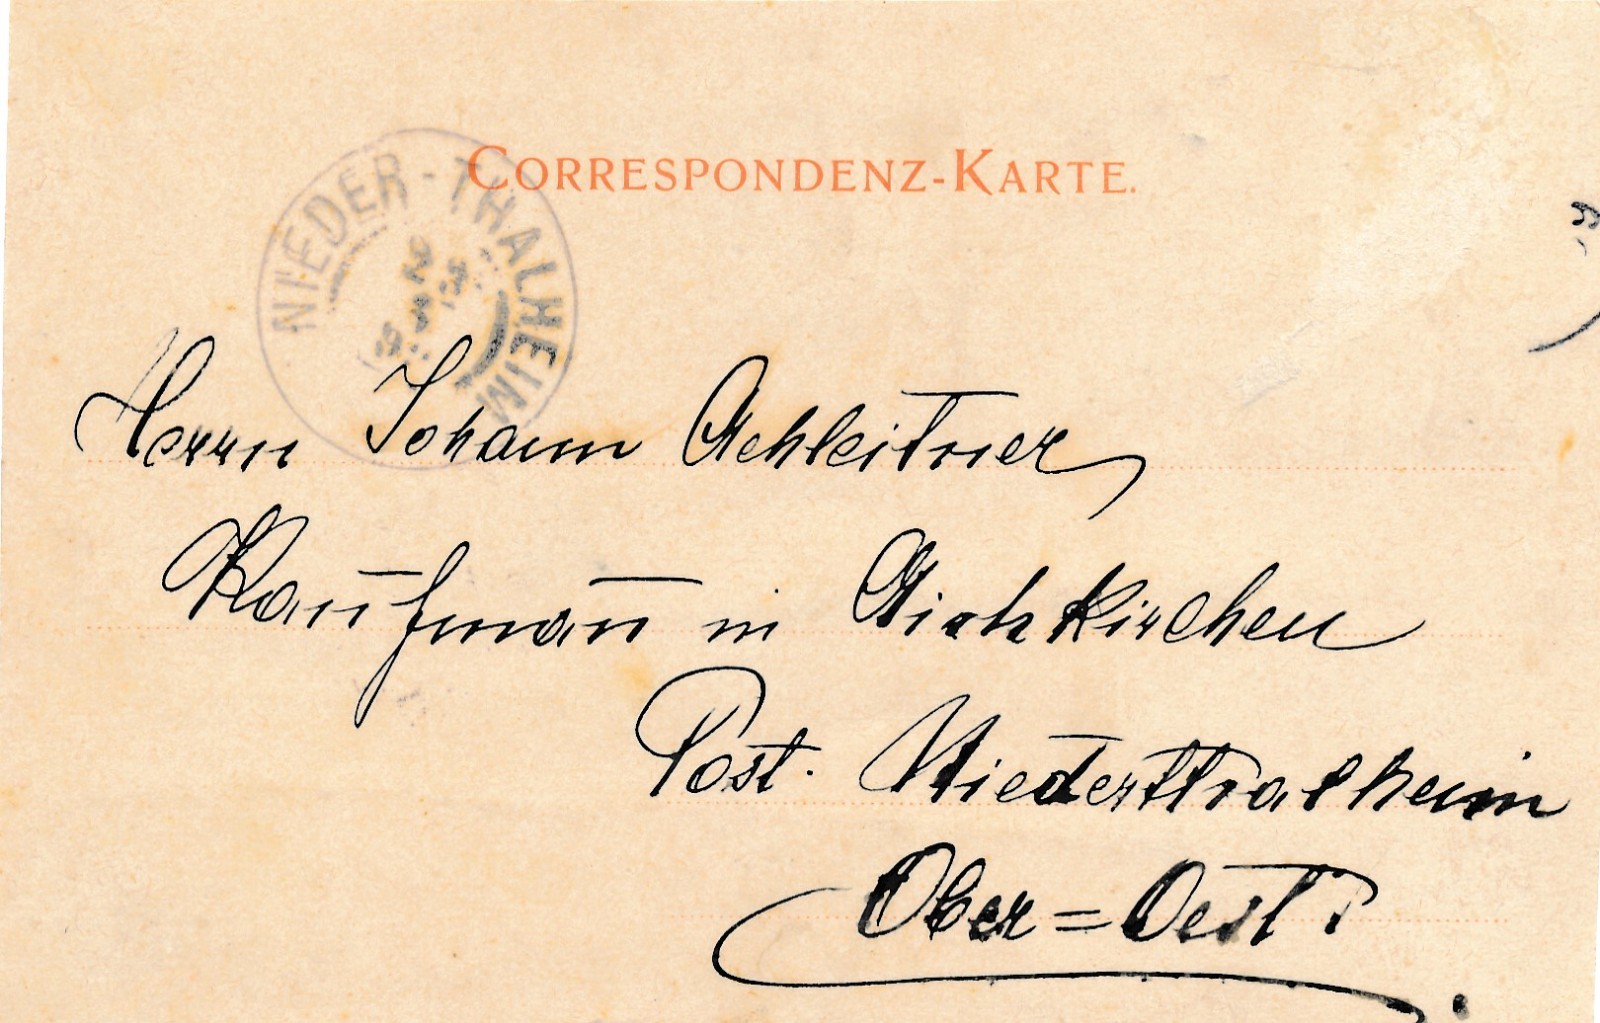 CORRESPONDENZ-KARTE.
NIEDER-THALHEIM
Herrn Johann Achleitner
Kaufman̄ in Aichkirchen
Post. Niederthalheim
Ober=Oest.